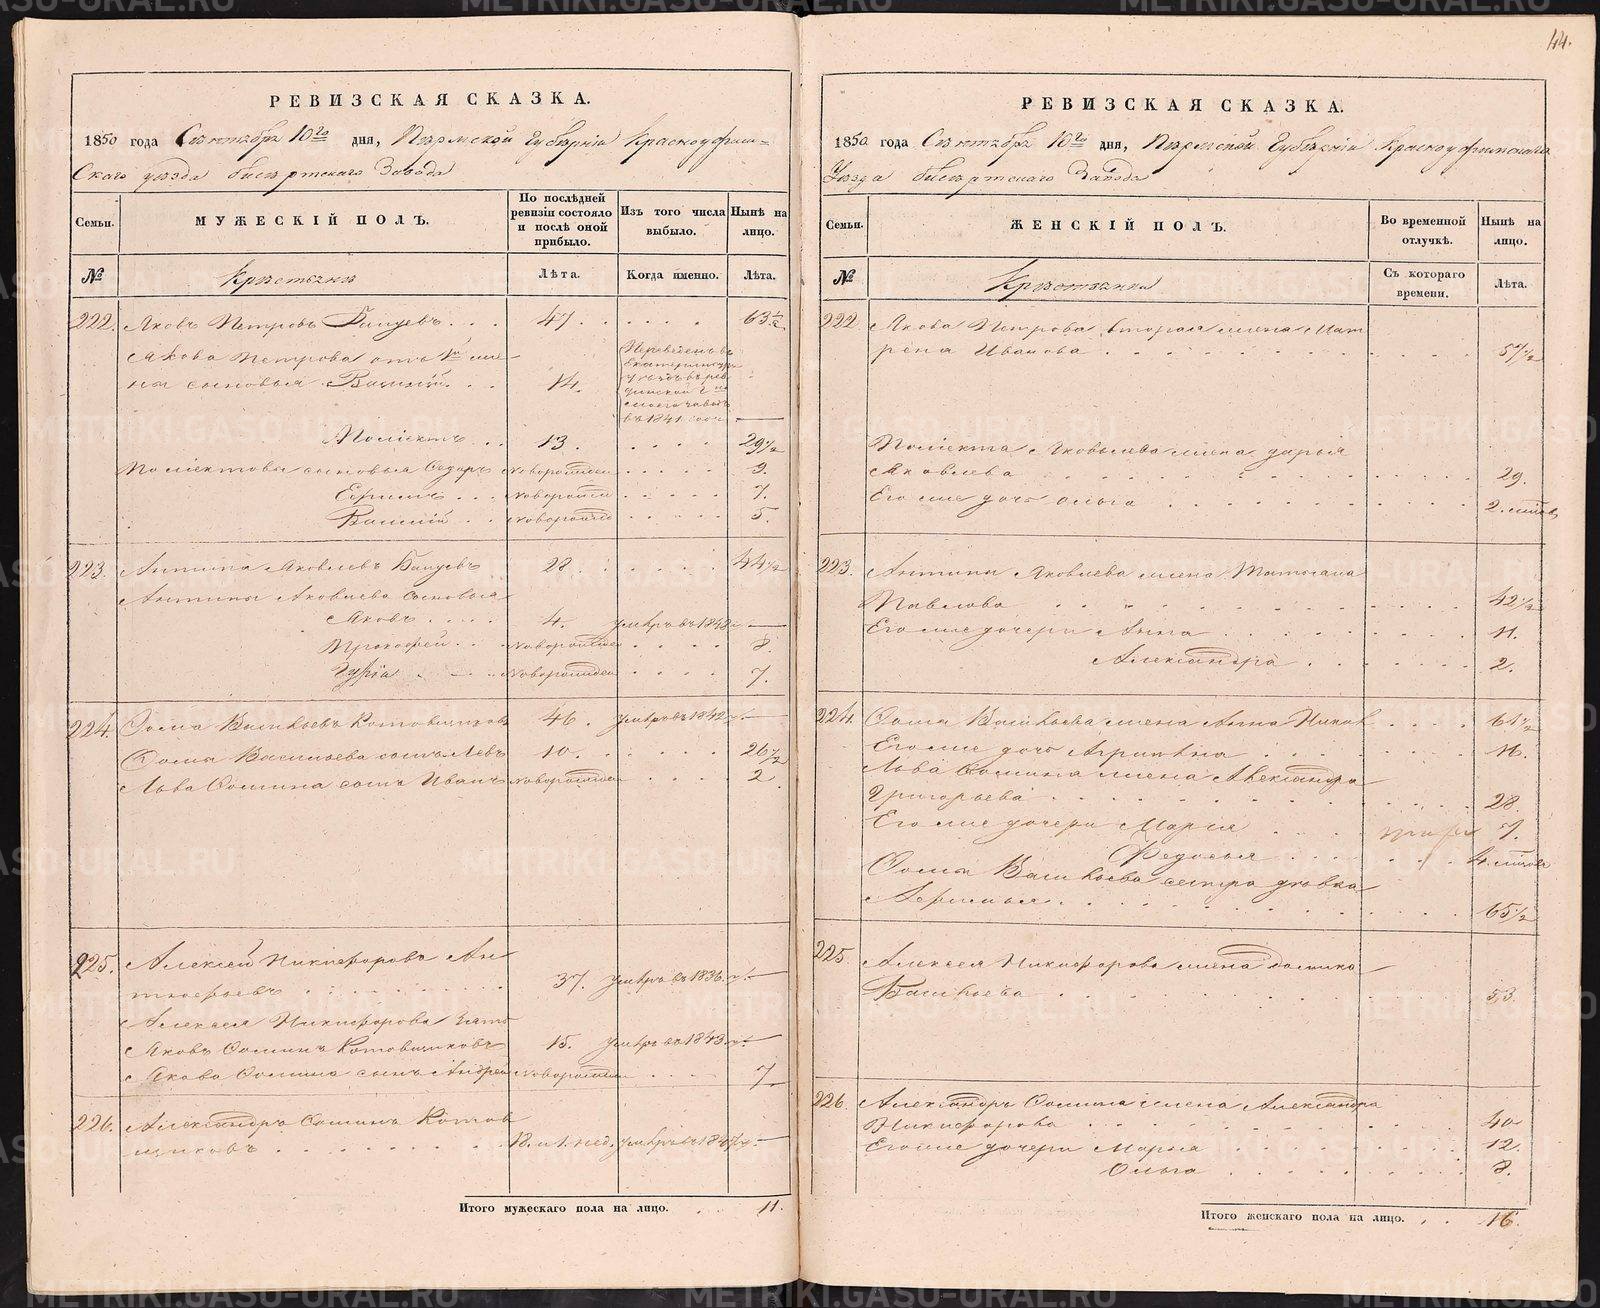 44.
РЕВИЗСКАЯ СКАЗКА.
1850 года Сентября 10го дня, Пермской Губернiи Красноуфим=
скаго уезда Бисертскаго Завода
Семьи.
МУЖЕСКIЙ ПОЛЪ.
По послѣдней ревизiи состояло и послѣ оной прибыло.
Изъ того числа выбыло.
Нынѣ на лицо.
№
Крестьяне
Лѣта.
Когда именно.
Лѣта.
222. Яковъ Петровъ 47. 63½
Якова Петрова отъ 1й же=
ны сыновья Василiй 14.
Переведенъ въ
въ 1841 году
Полiектъ 13. 29½
Полiектовы сыновья Федоръ новорожден 9.
Ефимъ новорожден 7.
Василiй новорожден 5.
223. Антипа Яковлевъ 28. 44½
Антипы Яковлева сыновья
Яковъ 4. умеръ въ 1842
Прокофей новорожден 8.
Гурiй новорожден 7.
224. Фома Васильевъ Котовщиковъ 46. умеръ въ 1842
Фомы Васильева сынъ Левъ 10. 26½
Льва Фомина сынъ Иванъ новорожден 2
225. Алексей Никифоровъ Ан
37. умеръ въ 1836
Алексея Никифорова зять
Яковъ Фоминъ Котовщиковъ 15. умеръ въ 1843
Якова Фомина сынъ Андрей новорожден 7
226. Александръ Фоминъ Котов
щиковъ 18. и 1. нед. умеръ въ 1847
Итого мужескаго пола на лицо. 11.
РЕВИЗСКАЯ СКАЗКА.
1850 года Сентября 10го дня, Пермской Губернiи Красноуфимскаго
Уезда Бисертскаго Завода
Семьи.
ЖЕНСКIЙ ПОЛЪ.
Во временной отлучкѣ.
Нынѣ на лицо.
№
Крестьянки
Съ котораго времени.
Лѣта.
222 Якова Петрова вторая жена Мат
рена Иванова 57½
Полiекта Яковлева жена Дарья
Яковлева 29.
Его же дочь Ольга 2. мѣсяц
223. Антипы Яковлева жена Татьяна
Павлова 42½
Его же дочери Анна 11.
Александра 2.
224. Фомы Васильева жена Анна 61½
Его же дочь Агрипина 16.
Льва Фомина жена Александра
Григорьева 28
Его же дочери Марья 7.
Федосья 4. мѣсяца
Фомы Васильева сестра девка
65½
225 Алексея Никифорова жена
Васильева 53.
226. Александра Фомина жена Александра
Никифорова 40
Его же дочери Марья 12.
Ольга 8.
Итого женскаго пола на лицо. 16.
METRIKI.GASO-URAL.RU